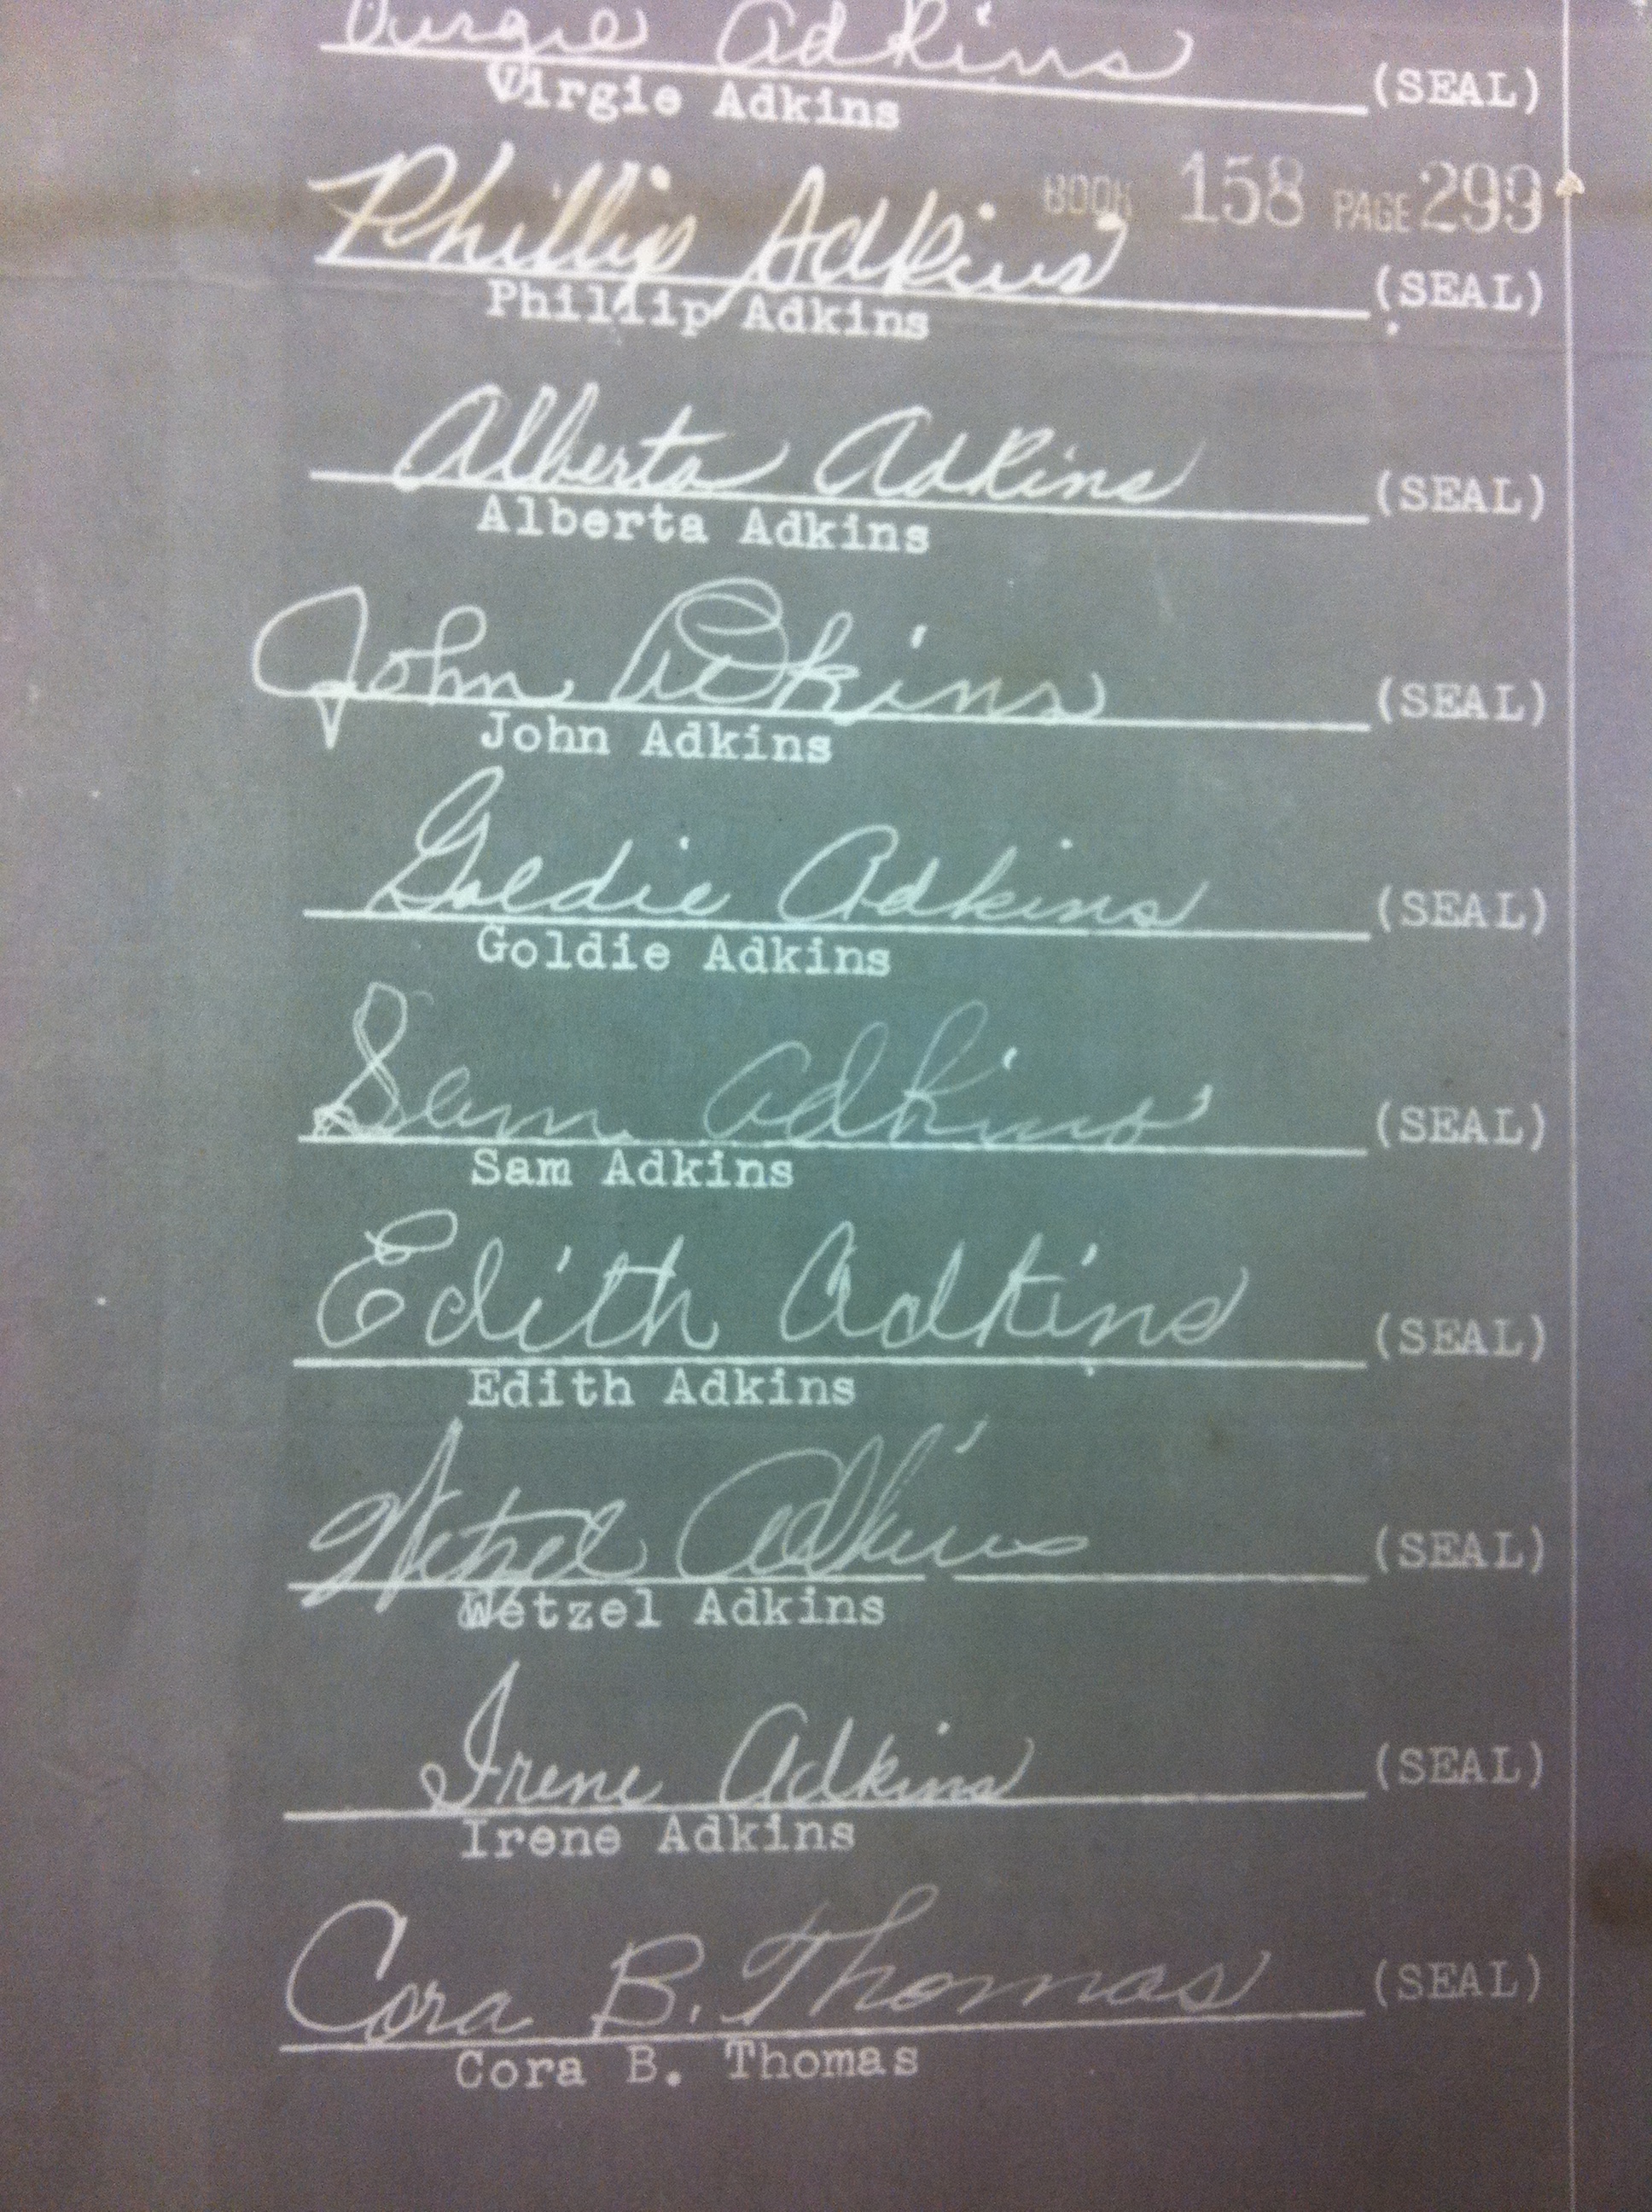 Virgie Adkins (SEAL)
Virgie Adkins
BOOK 158 PAGE 299
Phillip Adkins (SEAL)
Phillip Adkins
Alberta Adkins (SEAL)
Alberta Adkins
John Adkins (SEAL)
John Adkins
Goldie Adkins (SEAL)
Goldie Adkins
Sam Adkins (SEAL)
Sam Adkins
Edith Adkins (SEAL)
Edith Adkins
Wetzel Adkins (SEAL)
Wetzel Adkins
Irene Adkins (SEAL)
Irene Adkins
Cora B. Thomas (SEAL)
Cora B. Thomas